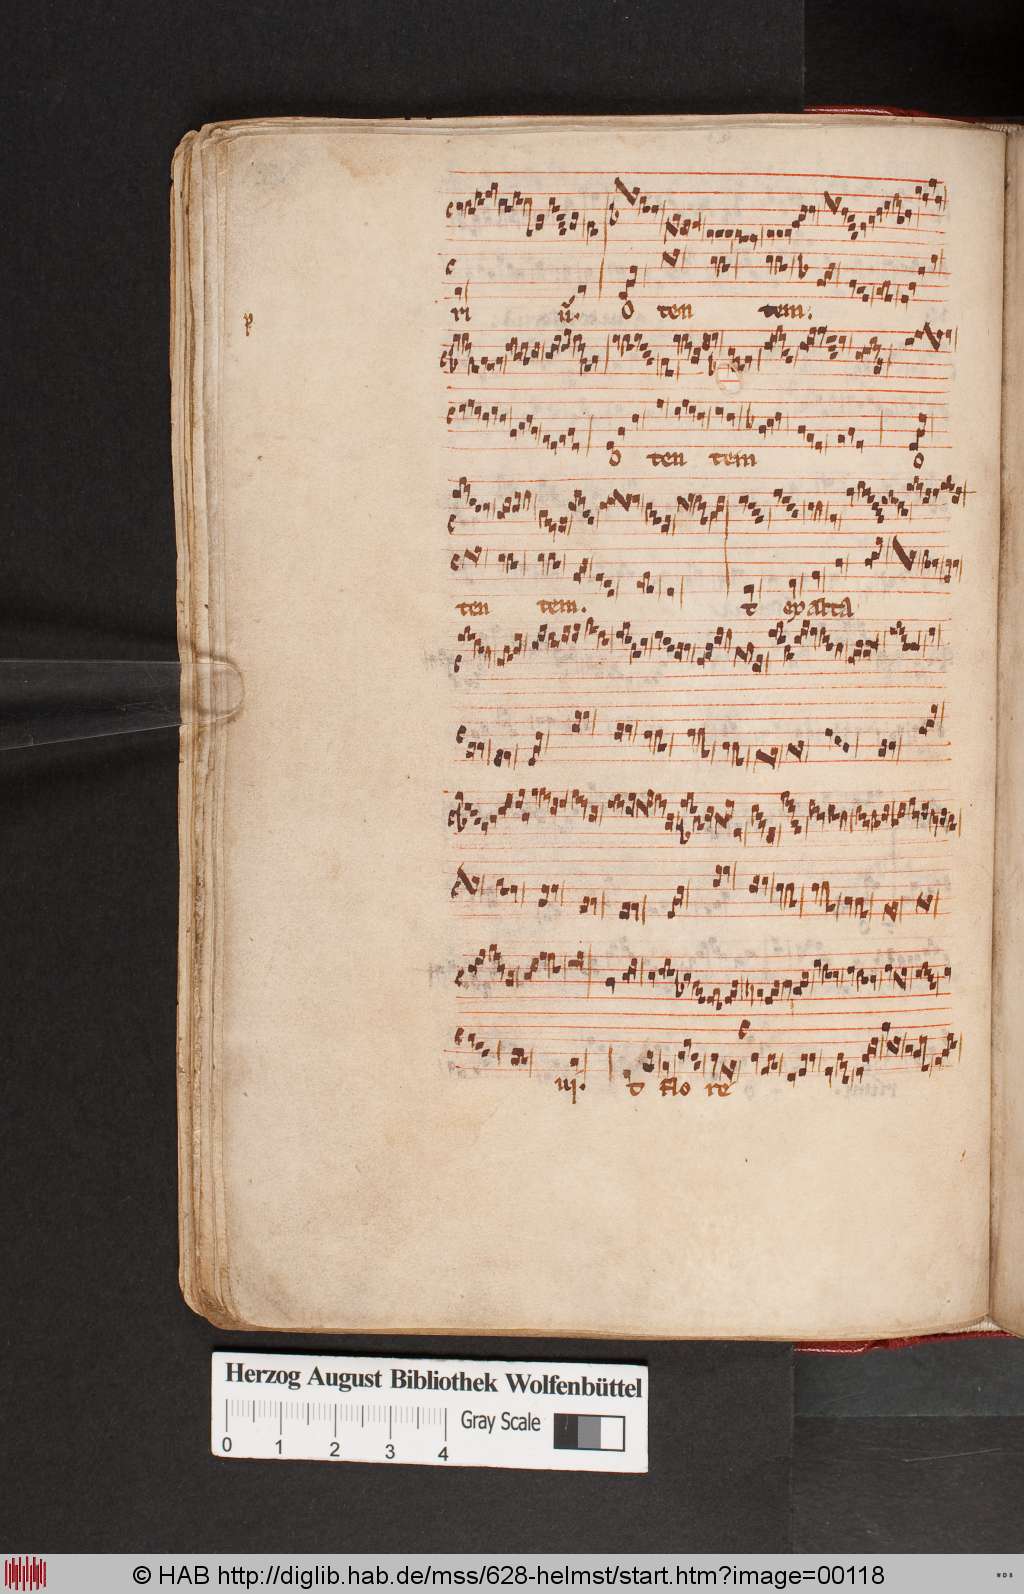 ri ũ. O ten tem.
p
O ten tem O
ten tem. t exalta
iij. t flo re
Herzog August Bibliothek Wolfenbüttel
Gray Scale
0 1 2 3 4
© HAB http://diglib.hab.de/mss/628-helmst/start.htm?image=00118